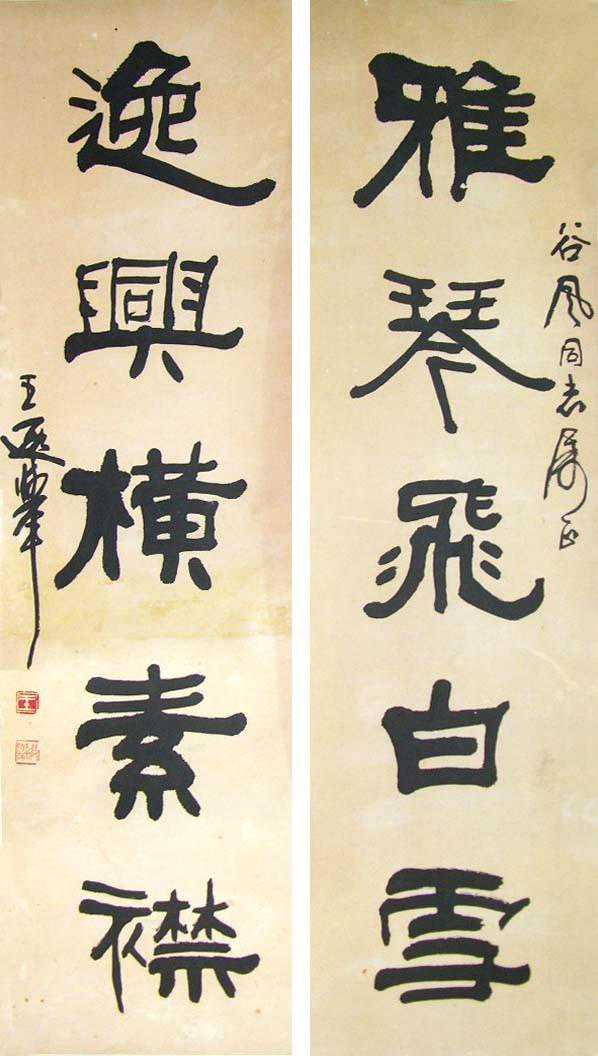 谷风同志属正
雅琴飛白雪
逸興橫素襟
王遐舉